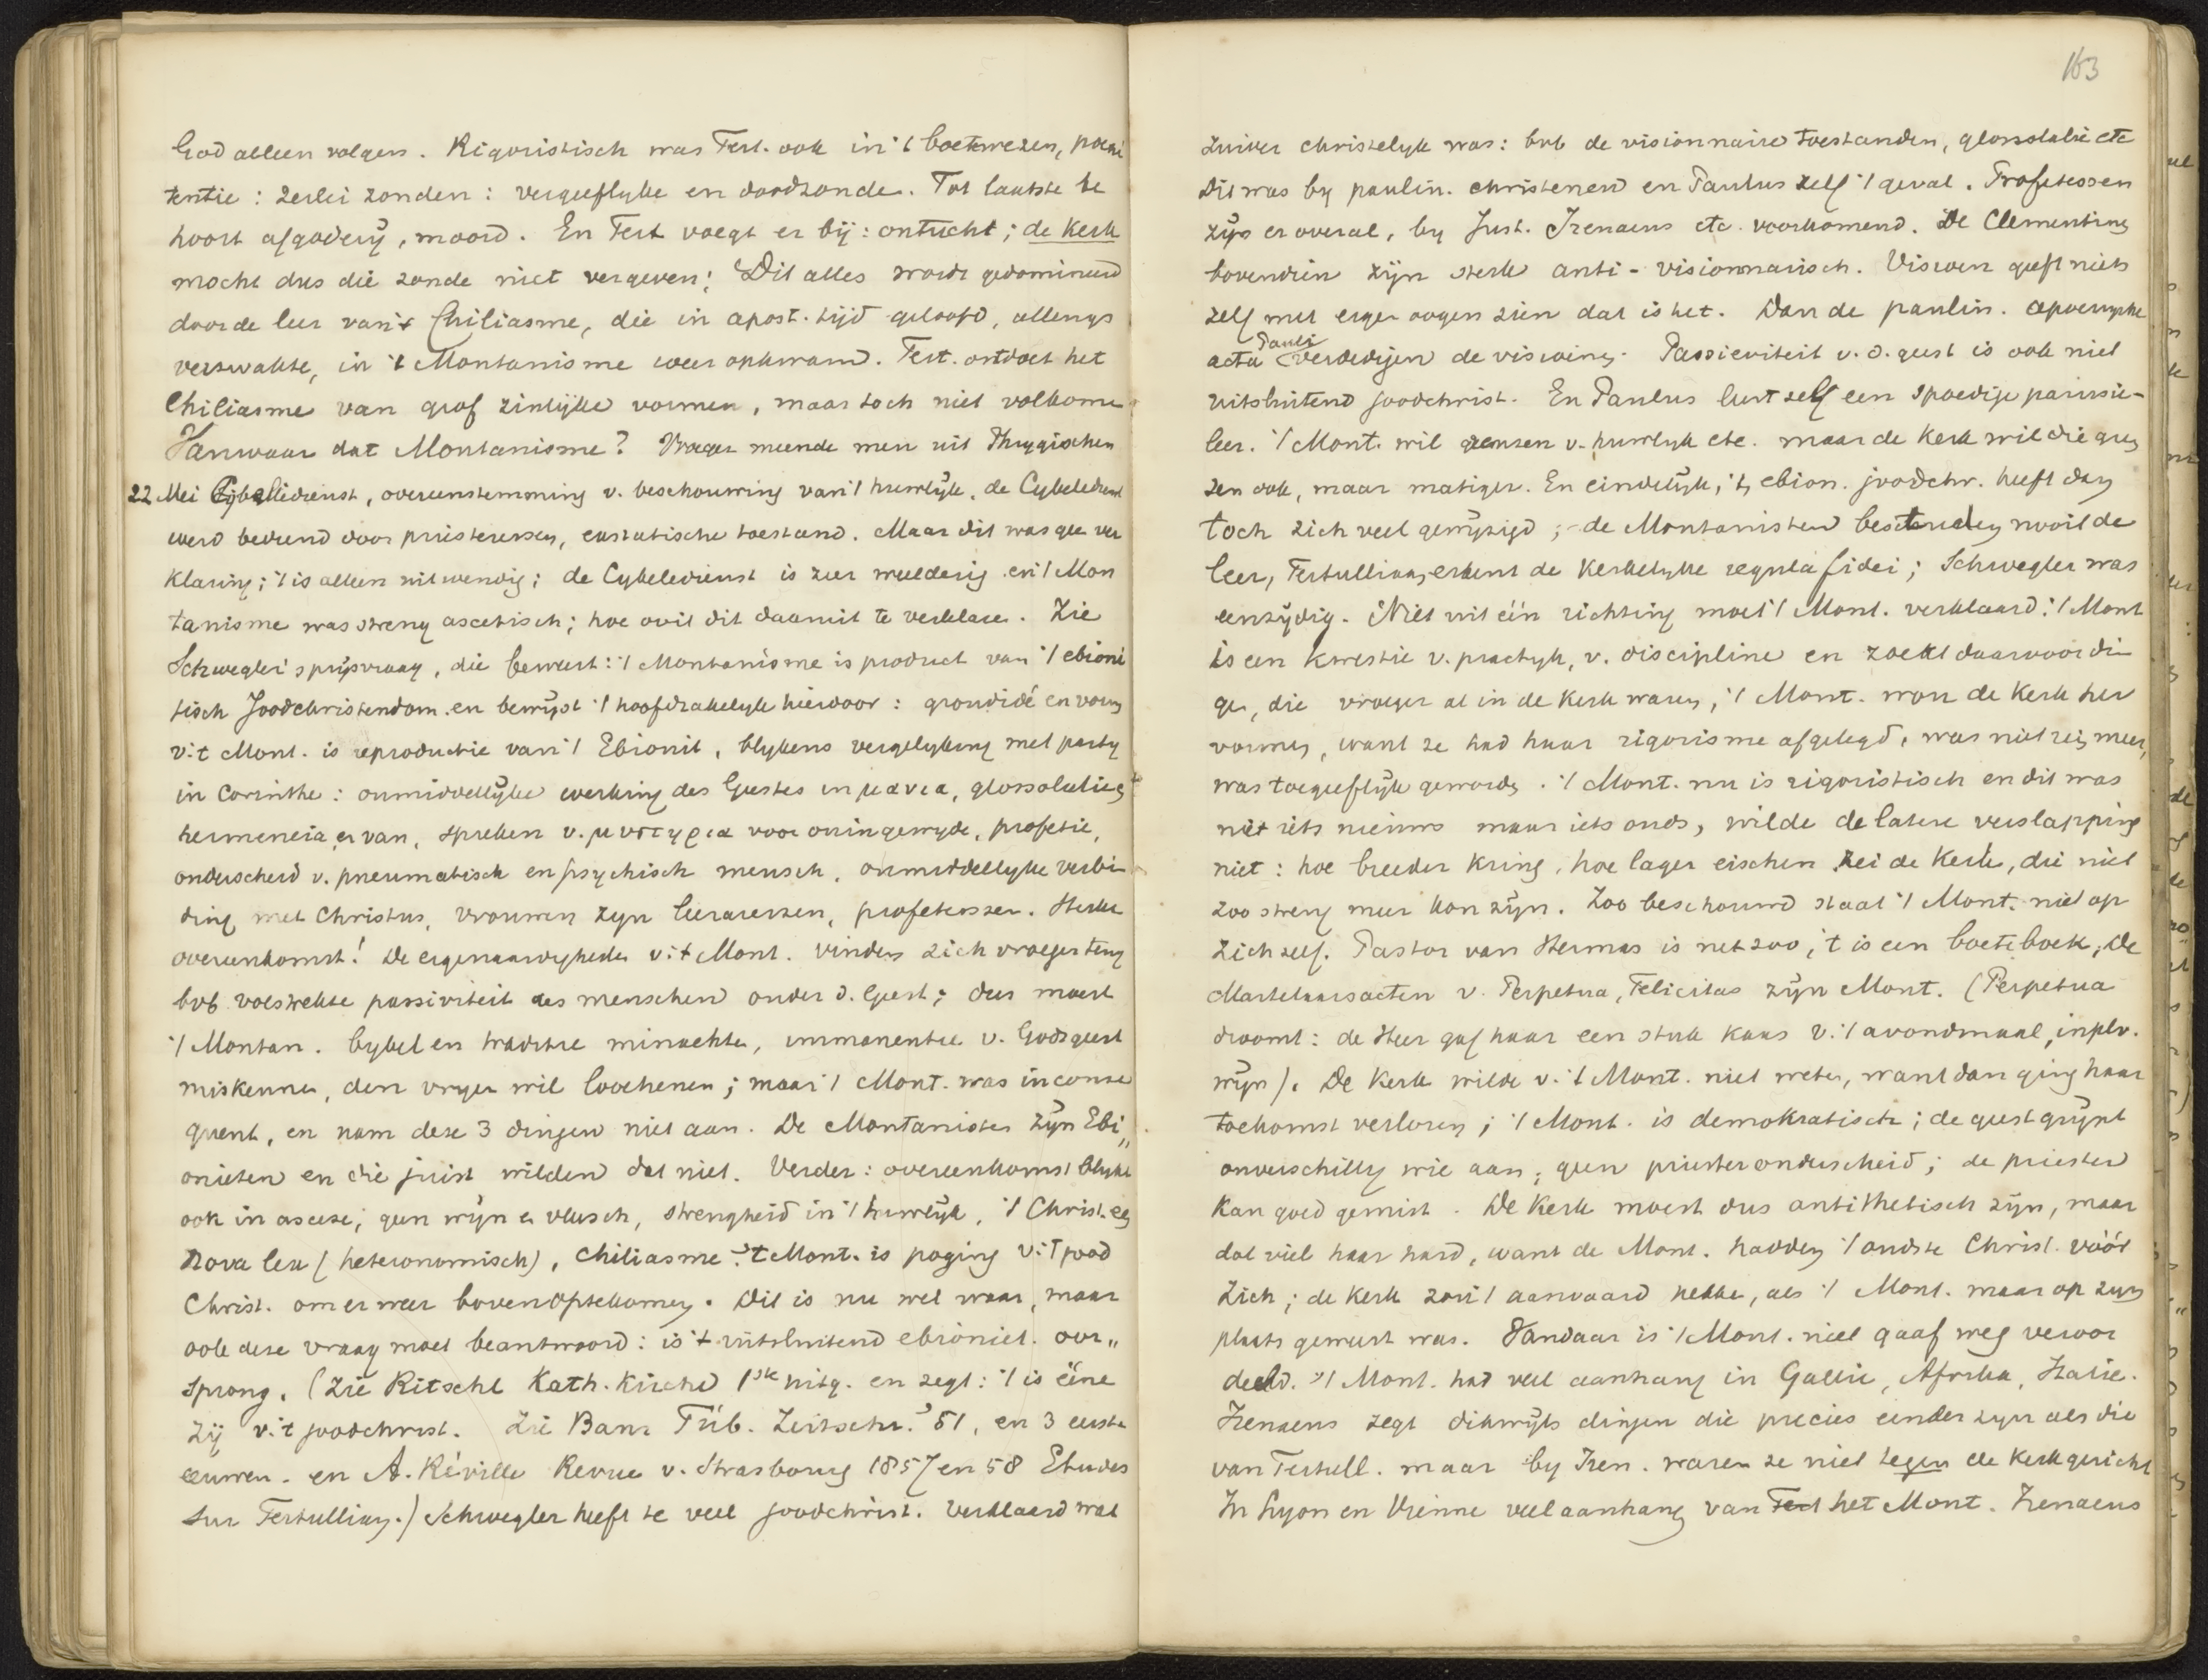 God alleen volgen. Rigoristisch was Tert. ook in 't boetewezen, poeni
tentie: 2erlei zonden: vergeeflyke en doodzonde. Tot laatste be
hoort afgodery, moord. En Tert voegt er bij: ontucht; de Kerk
mocht dus die zonde niet vergeven; Dit alles wordt gedomineerd
door de leer van 't Chiliasme, die in apost. tijd geloofd, allengs
verzwakte, in 't Montanisme weer opkwam. Tert. ontdoet het
Chiliasme van grof zinlijke vormen, maar toch niet volkome
Vanwaar dat Montanisme? Vroeger meende men uit Phrygischen
22 Mei Cybeledienst, overeenstemming v. beschouwing van 't huwlyk, de Cybeledienst
werd bediend door priesteressen, extatische toestand. Maar dit was gee ver
klaring; 't is alleen uitwendig; de Cybeledienst is zeer weelderig en 't Mon
tanisme was streng ascetisch; hoe ooit dit daaruit te verklare. Zie
Schwegler's prijsvraag, die beweert: 't Montanisme is product van 't ebioni
tisch Joodchristendom en bewyst 't hoofdzakelyk hierdoor: grondidé en vorm
v. 't Mont. is reproductie van 't Ebionit, blykens vergelyking met party
in Corinthe: onmiddellyke werking des Geestes in μανια, glossolalie &
hermeneia ervan, spreken v. μυστηρια voor oningewyde, profetie,
onderscheid v. pneumatisch en psychisch mensch, onmiddellyke verbin
ding met Christus, vrouwen zyn leeraressen, profetessen. Sterke
overeenkomst! De eigenaardigheden v. 't Mont. vinden zich vroeger terug
bvb. volstrekte passiviteit des menschen onder d. Geest; dus moest
't Montan. bybel en traditie minachte, immanentie v. Gods geest
miskennen, den vryen wil loochenen; maar 't Mont. was inconse
quent, en nam deze 3 dingen niet aan. De Montanisten zyn Ebi„
onieten en die juist wilden dat niet. Verder: overeenkomst blykt
ook in ascese; geen wyn & vleesch, strengheid in 't huwlyk, 't Christ. een
nova lex (heteronomisch), Chiliasme. 't Mont. is poging v. 't Jood
Christ. om er weer bovenop te komen. Dit is nu wel waar, maar
ook deze vraag moet beantwoord: is 't uitsluitend ebioniet. oor„
sprong. (Zie Ritschl Kath. Kirche 1ste uitg. en zegt: 't is ééne
zij v. 't joodchrist. Zie Baur Tüb. Zeitschr. '51, en 3 eerste
eeuwen. en A. Réville Revue v. Strasbourg 1857 en 58 Etudes
sur Tertullien.) Schwegler heeft te veel joodchrist. verklaard wat
163
zuiver christelyk was: bvb de visionnaire toestanden, glossolalie etc
Dit was by paulin. christenen en Paulus zelf 't geval. Profetessen
zijn er overal, by Just. Irenaeus etc. voorkomend. De Clementinen
bovendien zijn sterk anti-visionnarisch. Visioen geeft niets
zelf met eigen oogen zien dat is het. Dan de paulin. apocryphe
acta Pauli verdedigen de visioenen. Passieviteit v. d. geest is ook niet
uitsluitend joodchrist. En Paulus leert zelf een spoedige parusie-
leer. 't Mont. wil grenzen v. huwlyk etc. maar de Kerk wil die gren
zen ook, maar matiger. En eindelijk, 't ebion. joodchr. heeft dan
toch zich veel gewyzigd; de Montanisten bestreden nooit de
leer, Tertullianus erkent de Kerkelyke regula fidei; Schwegler was
eenzydig. Niet uit één richting moet 't Mont. verklaard: 't Mont
is een kwestie v. practyk, v. discipline en zoekt daarvoor din
ge, die vroeger al in de Kerk waren, 't Mont. wou de Kerk her
vormen, want ze had haar rigorisme afgelegd, was niet rein meer,
was toegeeflijk geworden. 't Mont. nu is rigoristisch en dit was
niet iets nieuws maar iets ouds, wilde de latere verslapping
niet: hoe breeder kring, hoe lager eischen zei de Kerk, die niet
zoo streng meer kon zijn. Zoo beschouwd staat 't Mont. niet op
zich zelf. Pastor van Hermas is net zoo, 't is een boeteboek; De
Martelaarsacten v. Perpetua, Felicitas zijn Mont. (Perpetua
droomt: de Heer gaf haar een stuk kaas v. 't avondmaal, inplv.
wijn). De Kerk wilde v. 't Mont. niet weten, want dan ging haar
toekomst verloren; 't Mont. is demokratisch; de geest grijpt
onverschillig wie aan, geen priesteronderscheid; de priester
kan goed gemist. De Kerk moest dus antithetisch zijn, maar
dat viel haar hard, want de Mont. hadden 't oudste Christ. vóór
zich; de Kerk zou 't aanvaard hebbe, als 't Mont. maar op zyn
plaats geweest was. Vandaar is 't Mont. niet gaaf weg veroor
deeld. 't Mont. had veel aanhang in Gallie, Afrika, Italie.
Irenaeus zegt dikwijls dingen die precies eender zyn als die
van Tertull. maar by Iren. waren ze niet tegen de Kerk gericht
In Lyon en Vienne veel aanhang van Tert het Mont. Irenaeus